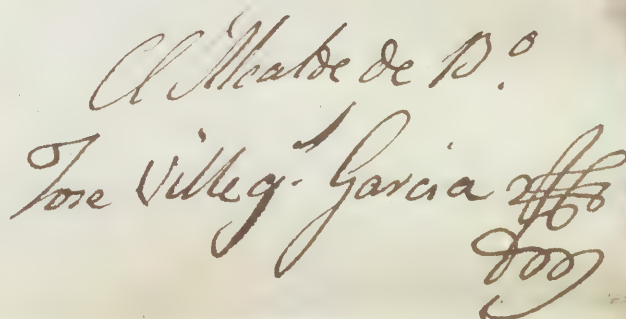 El Alcalde de B.º
Jose Villegs. Garcia